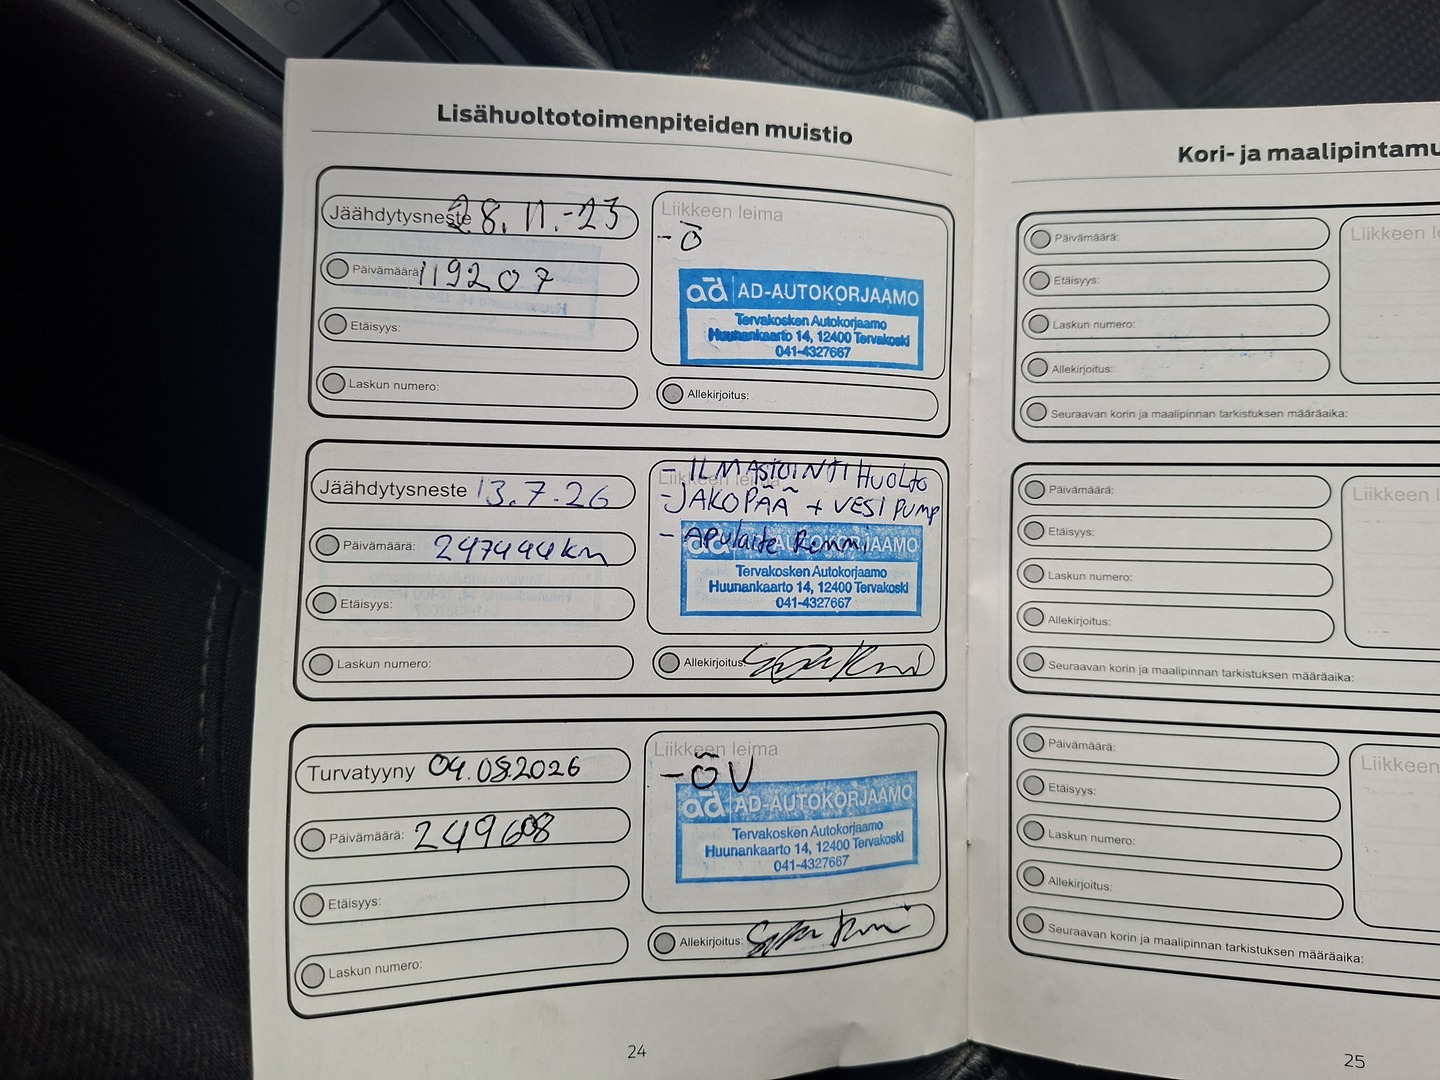 Lisähuoltotoimenpiteiden muistio
Jäähdytysneste 28.11.-23
Päivämäärä: 119207
Etäisyys:
Laskun numero:
Liikkeen leima
- Ö
ad AD-AUTOKORJAAMO
Tervakosken Autokorjaamo
Huunankaarto 14, 12400 Tervakoski
041-4327667
Allekirjoitus:
Jäähdytysneste 13.7.26
Päivämäärä: 247444km
Etäisyys:
Laskun numero:
Liikkeen leima
- ILMASTOINTI HUOLTO
- JAKOPÄÄ + VESI PUMP
- APULAITE REMMI
ad AD-AUTOKORJAAMO
Tervakosken Autokorjaamo
Huunankaarto 14, 12400 Tervakoski
041-4327667
Allekirjoitus:
Turvatyyny 04.08.2026
Päivämäärä: 249608
Etäisyys:
Laskun numero:
Liikkeen leima
- ÖV
ad AD-AUTOKORJAAMO
Tervakosken Autokorjaamo
Huunankaarto 14, 12400 Tervakoski
041-4327667
Allekirjoitus:
24
Kori- ja maalipintamu
Päivämäärä:
Etäisyys:
Laskun numero:
Allekirjoitus:
Seuraavan korin ja maalipinnan tarkistuksen määräaika:
Liikkeen l
Päivämäärä:
Etäisyys:
Laskun numero:
Allekirjoitus:
Seuraavan korin ja maalipinnan tarkistuksen määräaika:
Liikkeen
Päivämäärä:
Etäisyys:
Laskun numero:
Allekirjoitus:
Seuraavan korin ja maalipinnan tarkistuksen määräaika:
Liikkeen
25